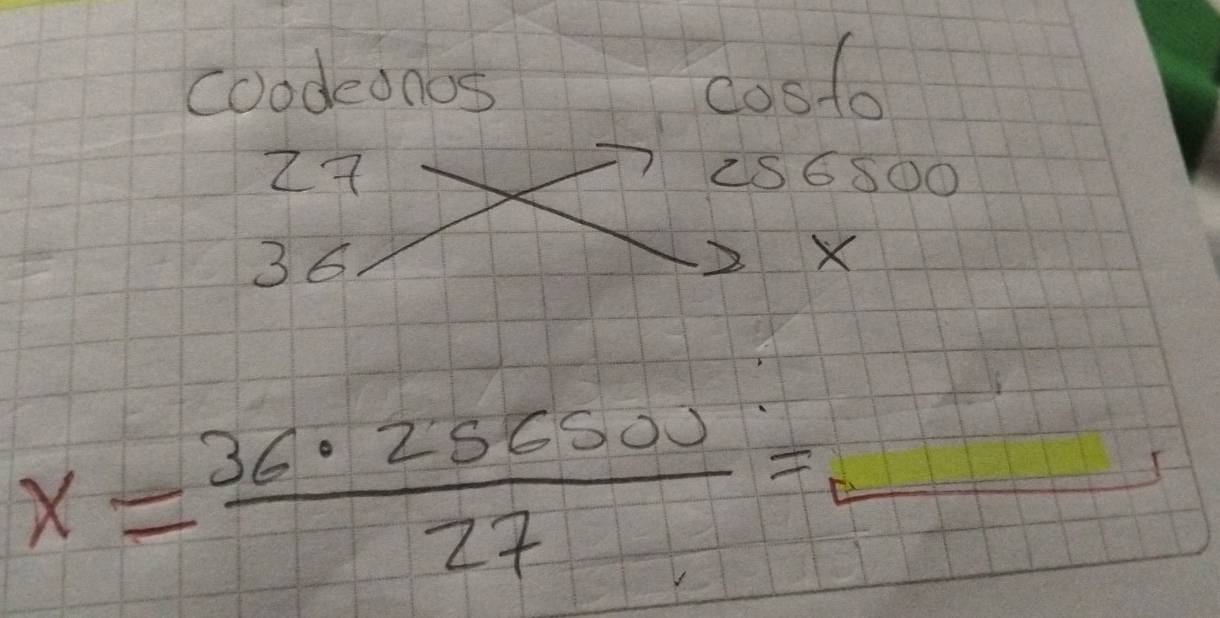 cuadernos costo
27 256500
36 x
x = 36 · 256500 / 27 =